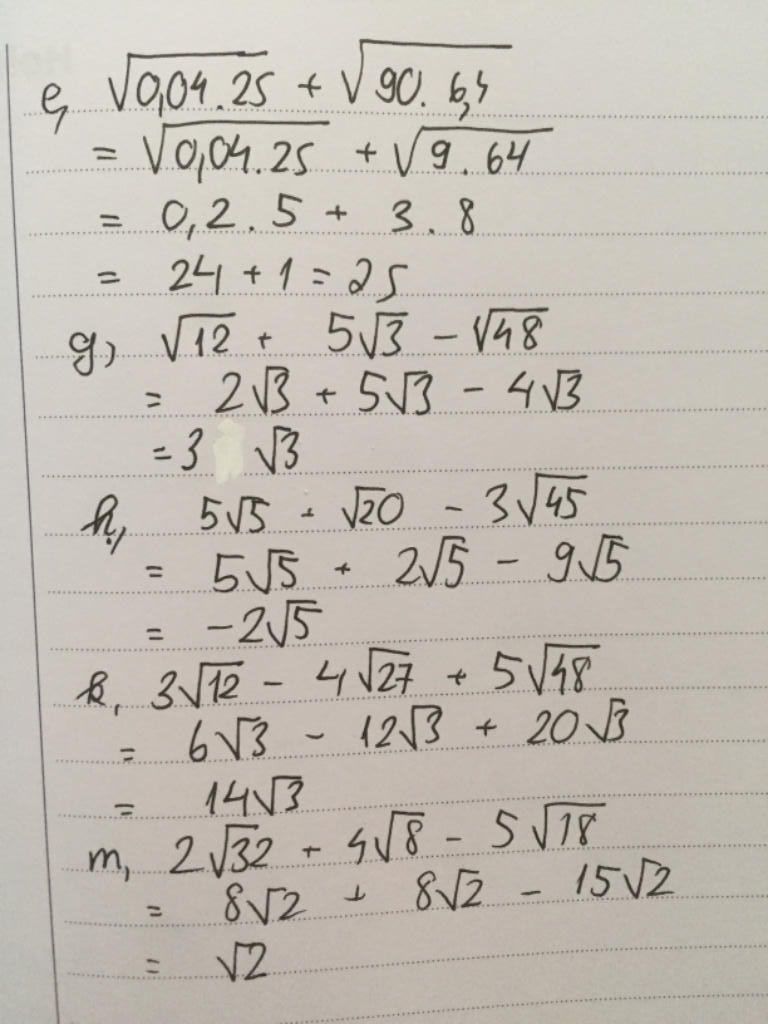 e, √0,04.25 + √90.6,4
= √0,04.25 + √9.64
= 0,2.5 + 3.8
= 24 + 1 = 25
g, √12 + 5√3 - √48
= 2√3 + 5√3 - 4√3
= 3 √3
h, 5√5 + √20 - 3√45
= 5√5 + 2√5 - 9√5
= -2√5
k, 3√12 - 4√27 + 5√48
= 6√3 - 12√3 + 20√3
= 14√3
m, 2√32 + 4√8 - 5√18
= 8√2 + 8√2 - 15√2
= √2